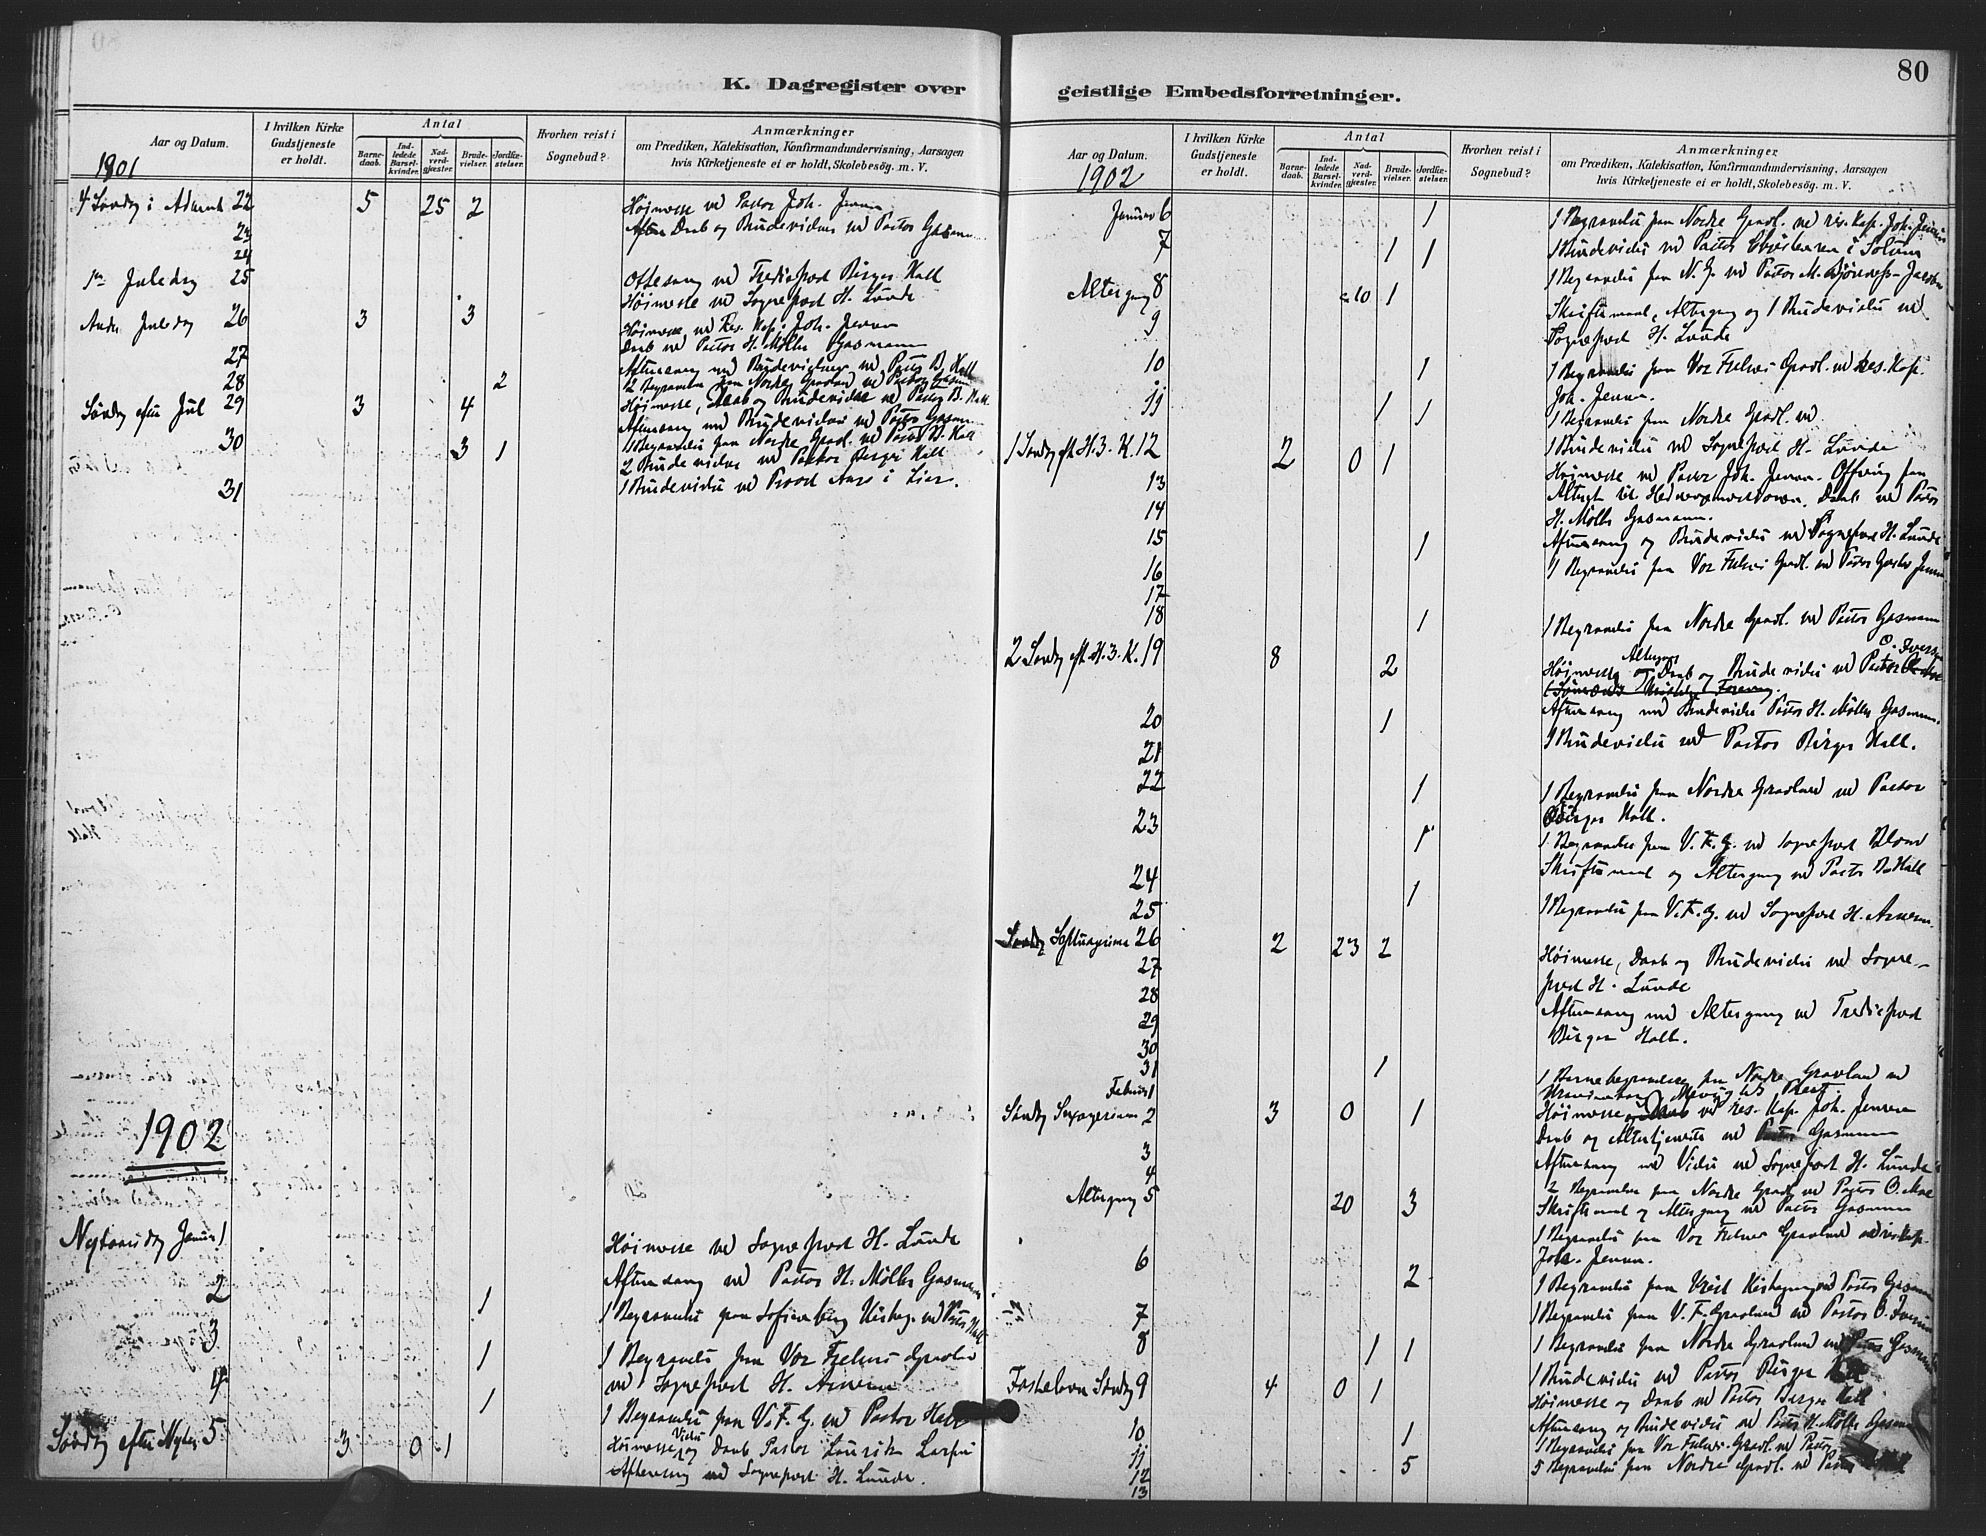 80
K. Dagregister over geistlige Embedsforretninger.
Aar og Datum.
I hvilken Kirke Gudstjeneste er holdt.
Antal
Barnedaab.
Indledede Barselkvinder.
Nadverdgjæster.
Brudevielser.
Jordfæstelser.
Hvorhen reist i Sognebud?
Anmærkninger
om Prædiken, Katekisation, Konfirmandundervisning, Aarsagen
hvis Kirketjeneste ei er holdt, Skolebesøg. m. V.
1901
4 Søndag i Advent 22 5 25 2 Høimesse ved Pastor Joh. Jensen
23 Aftens Daab og Brudevielser ved Pastor Gasmann
24
1ste Juledag 25 Ottesang ved Tredieprest Birger Hall
Høimesse ved Sogneprest H. Lunde
Anden Juledag 26 3 3 Høimesse ved Res. Kap. Joh. Jensen
Daab ved Pastor H. Møller Gasmann
27 Aftensang med Brudevielser ved Pastor B. Hall
28 2 2 Begravelser fra Nordre Gravlund ved Pastor Gasmann
Søndag efter Jul 29 3 4 Høimesse, Daab og Brudevielse ved Pastor B. Hall
Aftensang med Brudevielser ved Pastor Gasmann
30 3 1 1 Begravelse fra Nordre Gravl. ved Pastor B. Hall
2 Brudevielser ved Pastor Birger Hall
31 1 Brudevielse ved Provst Aars i Lier.
1902
Nytaarsdag Januar 1 Høimesse ved Sogneprest H. Lunde
Aftensang ved Pastor H. Møller Gasmann
2 1 1 Begravelse fra Sofienberg Kirkeg. ved Pastor Hall
3 1 1 Begravelse fra Vor Frelsers Gravlund
ved Sogneprest H. Arnesen
4 1 1 Begravelse fra V. F. G. ved Pastor Hall
Søndag efter Nytaar 5 3 0 1 Høimesse, Vielse og Daab Pastor Laurits Larsen
Aftensang ved Sogneprest H. Lunde.
Aar og Datum.
I hvilken Kirke Gudstjeneste er holdt.
Antal
Barnedaab.
Indledede Barselkvinder.
Nadverdgjæster.
Brudevielser.
Jordfæstelser.
Hvorhen reist i Sognebud?
Anmærkninger
om Prædiken, Katekisation, Konfirmandundervisning, Aarsagen
hvis Kirketjeneste ei er holdt, Skolebesøg. m. V.
1902
Januar 6 1 1 Begravelse fra Nordre Gravl. ved res. Kap. Joh. Jensen
7 1 1 1 Brudevielse ved Pastor Christensen i Solum
1 Begravelse fra N. G. ved Pastor M.
Altergang 8 10 1 Skriftemaal, Altergang og 1 Brudevielse ved
9 Sogneprest H. Lunde
10 1 1 Begravelse fra Vor Frelsers Gravl. ved Res. Kap.
Joh. Jensen.
11 1 1 1 Begravelse fra Nordre Gravl. ved
1 Brudevielse ved Sogneprest H. Lunde
1 Søndag eft. H. 3. K. 12 2 0 1 Høimesse ved Pastor Joh. Jensen. Offring fra
13 Alteret til Hedningemissionen. Daab ved Pastor
14 H. Møller Gasmann.
Aftensang og Brudevielse ved Sogneprest H. Lunde
15 1 1 Begravelse fra Vor Frelsers Gravl. ved Pastor Gustav Jensen
16
17
18 1 1 Begravelse fra Nordre Gravl. ved Pastor Gasmann
2 Søndag eft. H. 3. K. 19 8 2 Høimesse Altergang og Daab og Brudevielse ved Pastor O. Iversen
Aftensang med Brudevielse Pastor H. Møller Gasmann.
20 1 1 Brudevielse ved Pastor Birger Hall.
21
22 1 1 Begravelse fra Nordre Gravlund ved Pastor
Birger Hall.
23 1 1 Begravelse fra V. F. G. ved Sogneprest Blom
Skriftemaal og Altergang ved Pastor B. Hall
24 1 1 Begravelse fra V. F. G. ved Sogneprest H. Arnesen.
25
Søndag Septuagesima 26 2 23 2 Høimesse, Daab og Brudevielse ved Sogne-
27 prest H. Lunde
28 Aftensang med Altergang ved Tredieprest
29 Birger Hall.
30
31 1 1 Barnebegravelse fra Nordre Gravlund ved
Februar 1
Søndag Sexagesima 2 3 0 1 Høimesse ved res. Kap. Joh. Jensen
Daab og Altertjeneste ved Pastor Gasmann
3 Aftensang med Vielse ved Sogneprest H. Lunde
4 2 Begravelser fra Nordre Gravl. ved Pastor O. Moe
Altergang 5 20 3 Skriftemaal og Altergang ved Pastor Gasmann
1 Begravelse fra Vor Frelsers Gravlund ved res. Kap.
Joh. Jensen.
6 2 1 Begravelse fra Kirkegaard ved Pastor Gasmann
1 Begravelse fra V. F. Gravlund ved Pastor O. Iversen
7
8 1 1 1 Begravelse fra Nordre Gravlund ved Pastor Gasmann
1 Brudevielse ved Pastor Birger Hall
Fastelavns Søndag 9 4 0 1 Høimesse og Daab ved Pastor Birger Hall
Aftensang og Brudevielse ved Pastor H. Møller Gasmann
10 1 1 Begravelse fra Vor Frelsers Gravl. ved Pastor
11 5 5 Begravelser fra Nordre Gravl. ved Pastor
12
13